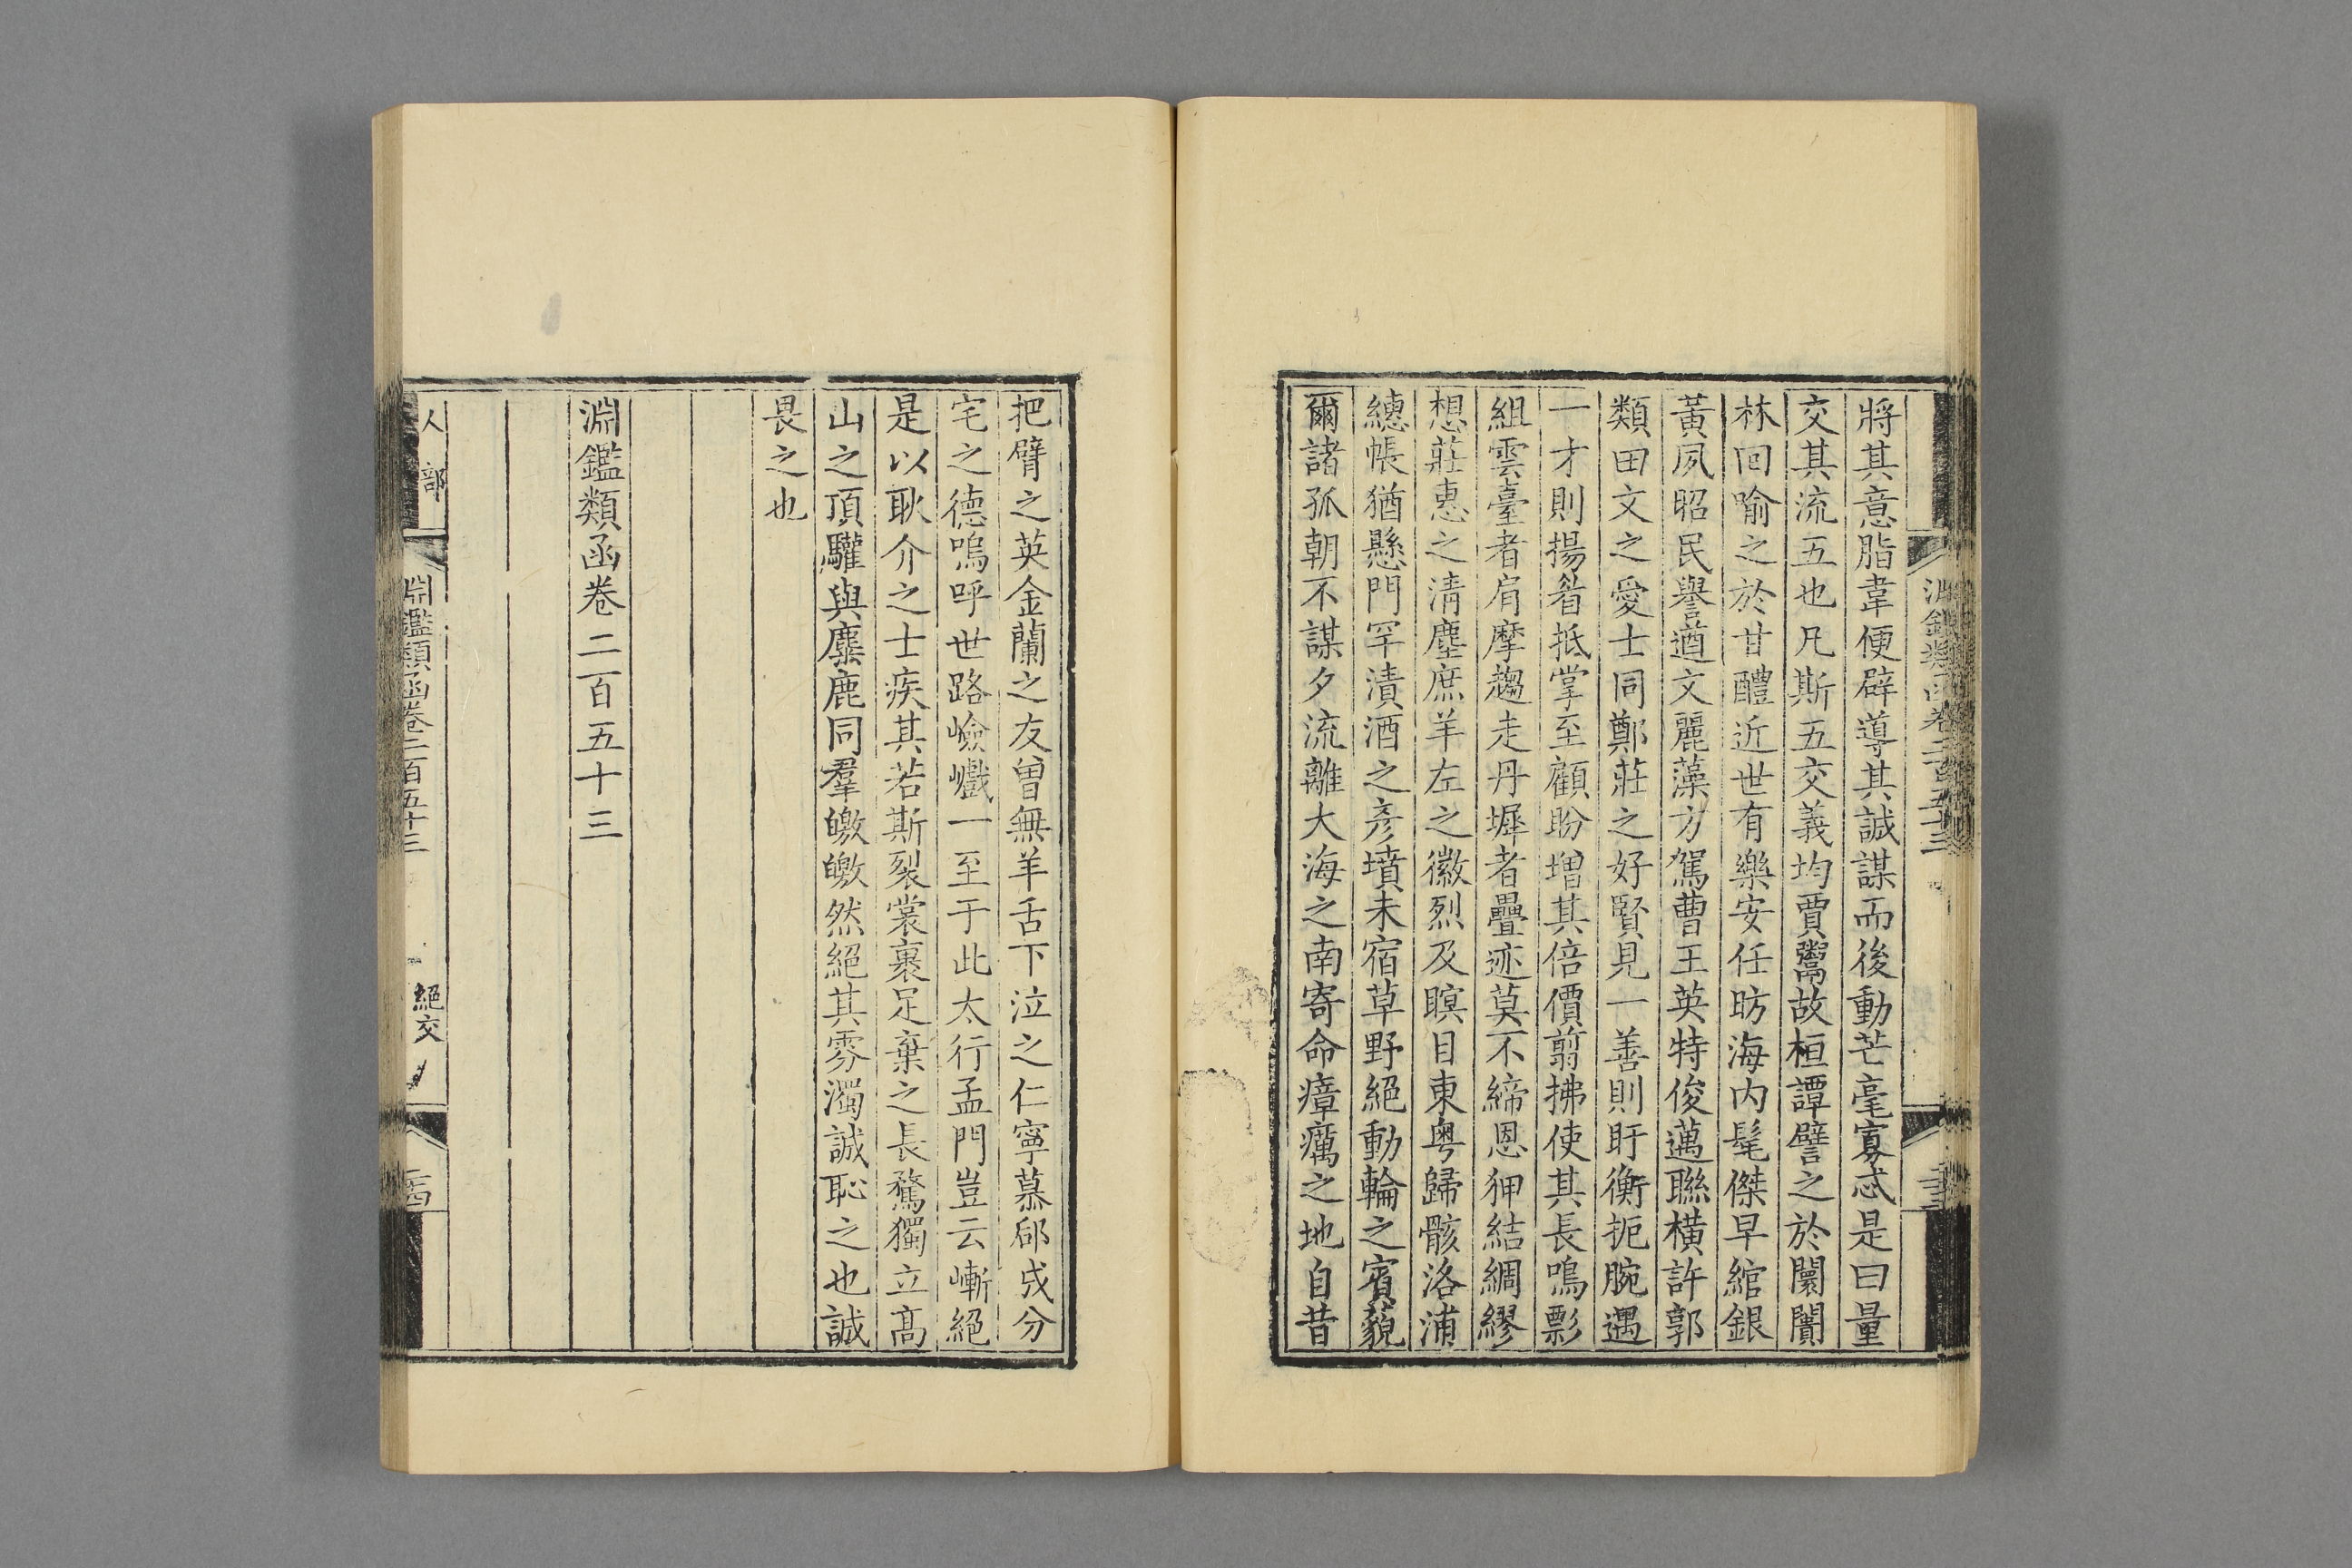 將其意脂韋便辟導其誠謀而後動芒毫寡忒是曰量
交其流五也凡斯五交義均賈鬻故桓譚譬之於闤闠
林回喻之於甘醴近世有樂安任昉海內髦傑早綰銀
黃夙昭民譽遒文麗藻方駕曹王英特俊邁聯橫許郭
類田文之愛士同鄭莊之好賢見一善則盱衡扼腕遇
一才則揚眉抵掌至顧盼增其倍價翦拂使其長鳴影
組雲臺者肩摩趨走丹墀者疊迹莫不締恩狎結綢繆
想莊惠之清塵庶羊左之徽烈及瞑目東粵歸骸洛浦
繐帳猶懸門罕漬酒之彥墳未宿草野絕動輪之賓藐
爾諸孤朝不謀夕流離大海之南寄命瘴癘之地自昔
把臂之英金蘭之友曾無羊舌下泣之仁寧慕郈成分
宅之德嗚呼世路嶮巇一至于此太行孟門豈云嶃絕
是以耿介之士疾其若斯裂裳裹足棄之長騖獨立高
山之頂驩與麋鹿同羣皦皦然絕其雰濁誠恥之也誠
畏之也
淵鑑類函卷二百五十三
人部
淵鑑類函卷二百五十三
絕交